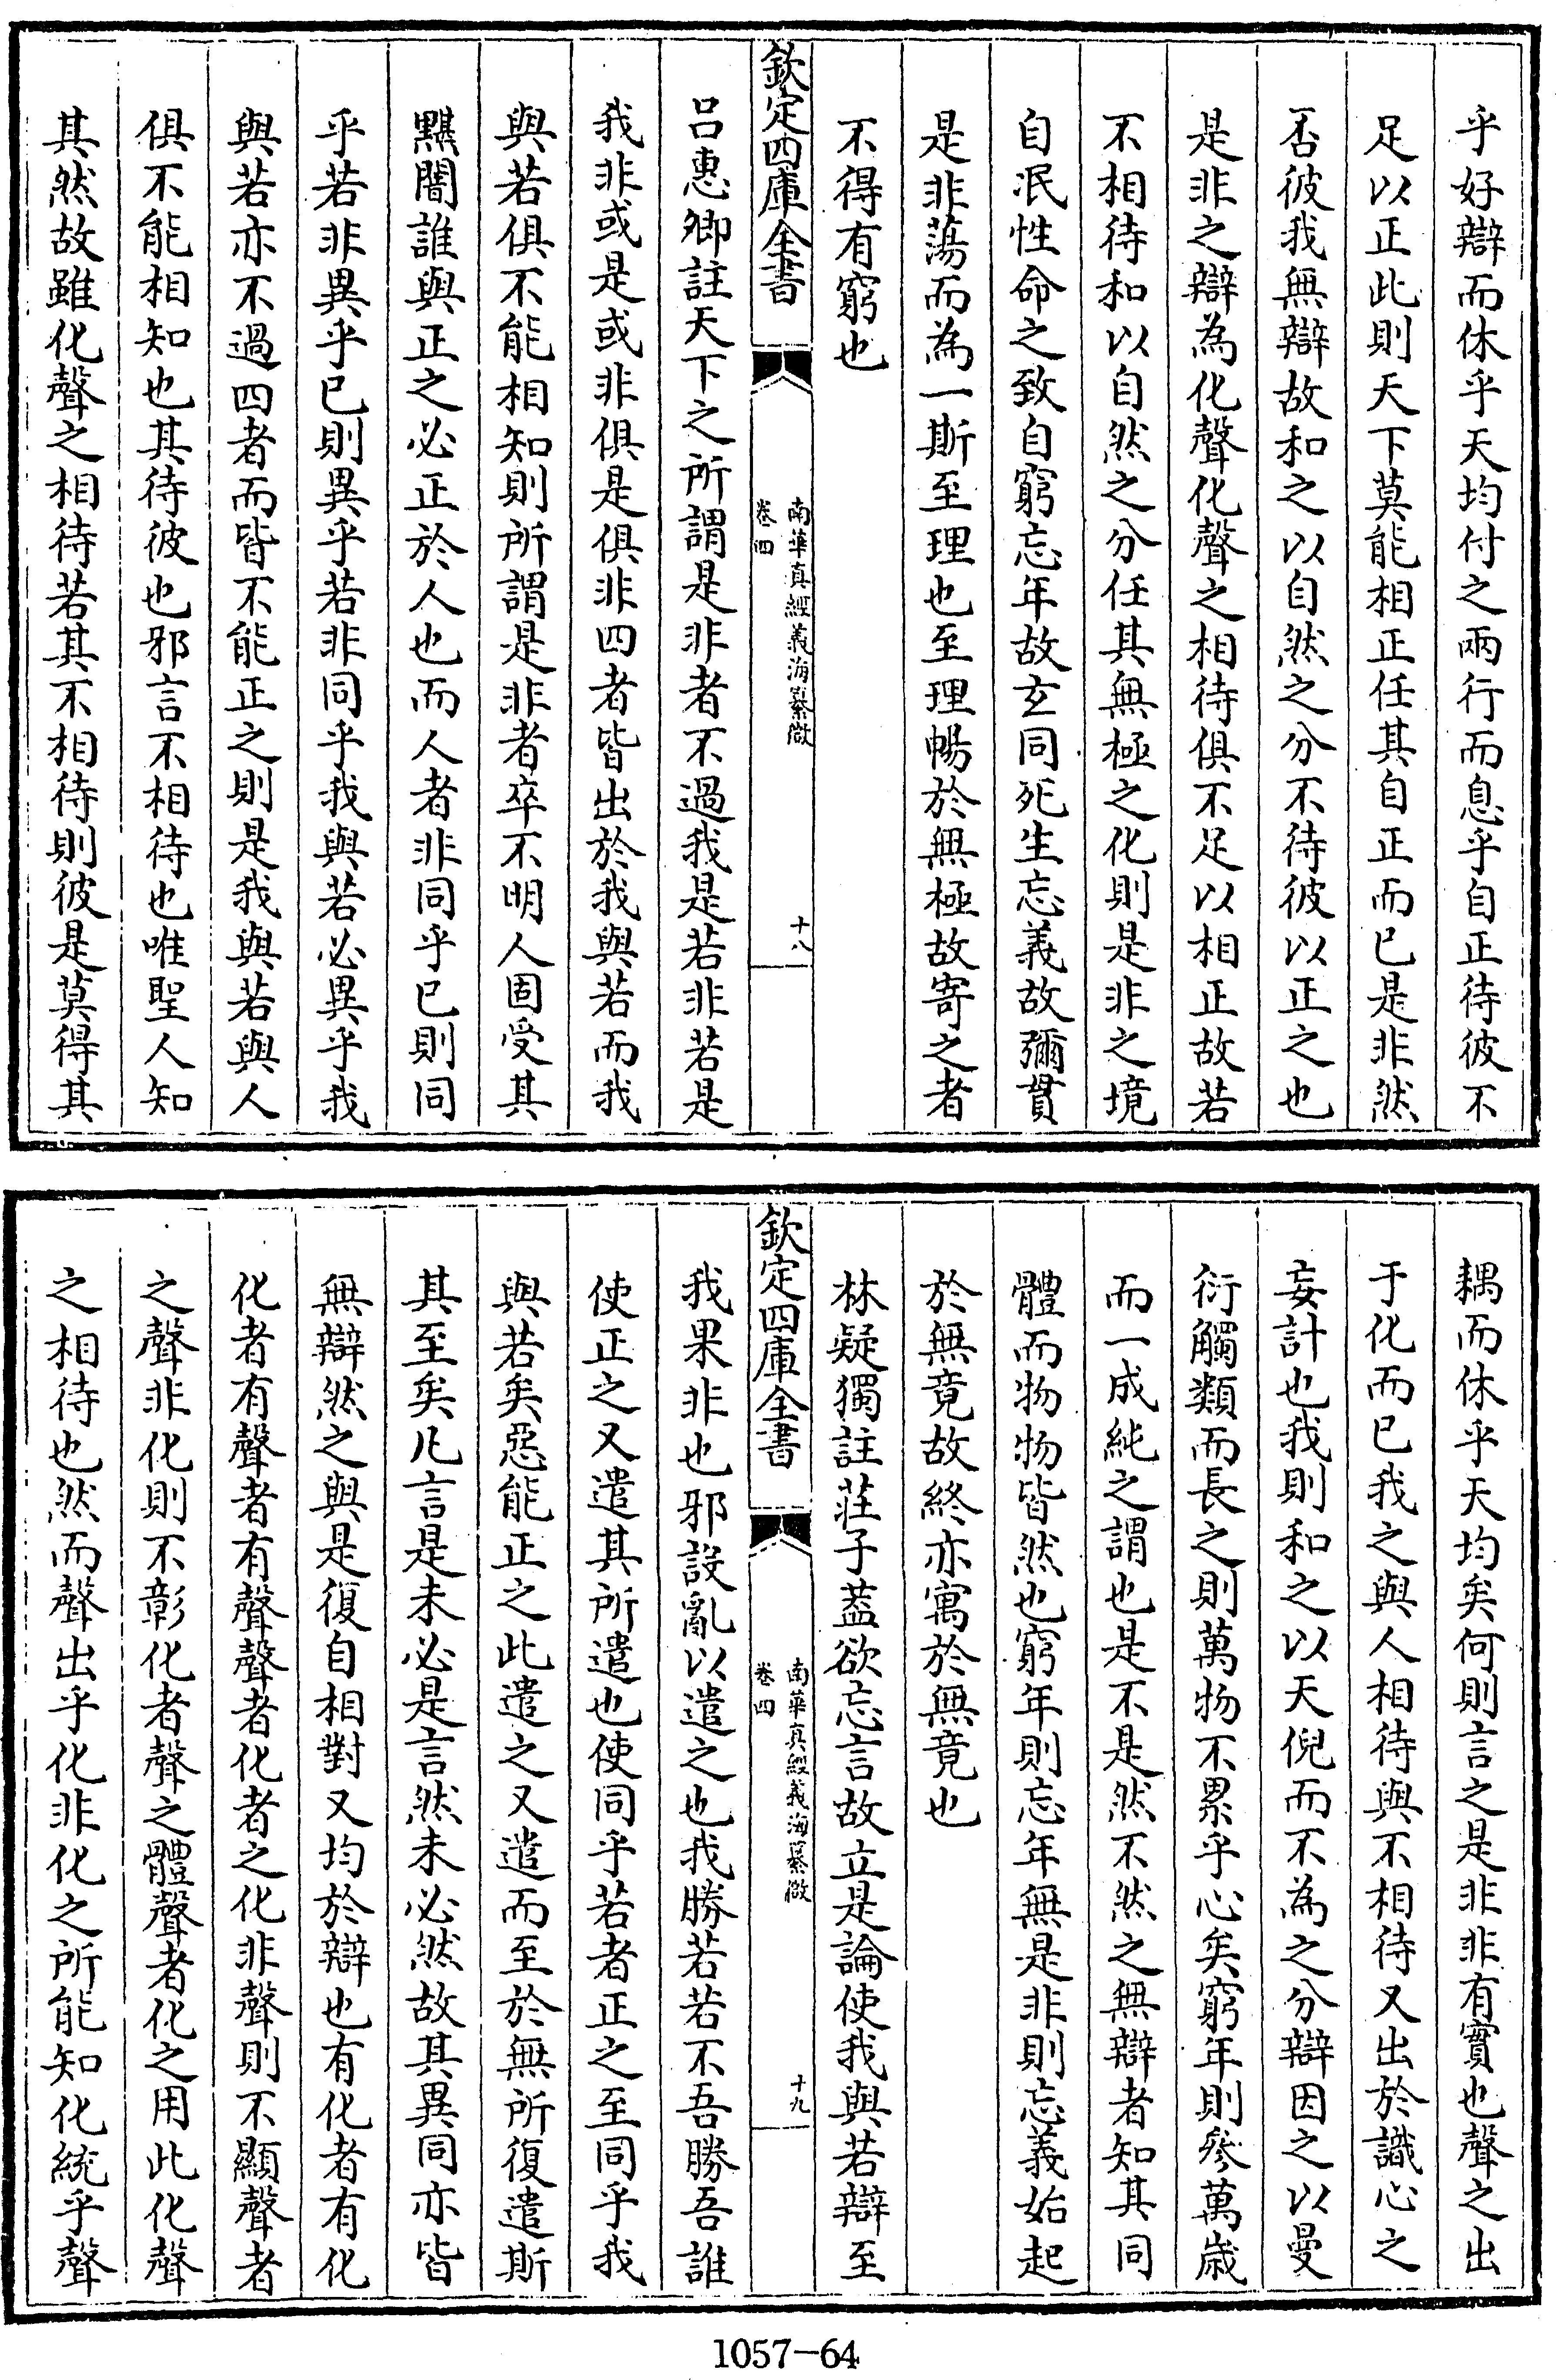 乎好辯而休乎天均付之兩行而息乎自正待彼不
足以正此則天下莫能相正任其自正而已是非然
否彼我無辯故和之以自然之分不待彼以正之也
是非之辯為化聲化聲之相待俱不足以相正故若
不相待和以自然之分任其無極之化則是非之境
自泯性命之致自窮忘年故玄同死生忘義故彌貫
是非蕩而為一斯至理也至理暢於無極故寄之者
不得有窮也
欽定四庫全書
南華真經義海纂微
卷四
十八
呂惠卿註天下之所謂是非者不過我是若非若是
我非或是或非俱是俱非四者皆出於我與若而我
與若俱不能相知則所謂是非者卒不明人固受其
黮闇誰與正之必正於人也而人者非同乎已則同
乎若非異乎已則異乎若非同乎我與若必異乎我
與若亦不過四者而皆不能正之則是我與若與人
俱不能相知也其待彼也邪言不相待也唯聖人知
其然故雖化聲之相待若其不相待則彼是莫得其
耦而休乎天均矣何則言之是非非有實也聲之出
于化而已我之與人相待與不相待又出於識心之
妄計也我則和之以天倪而不為之分辯因之以曼
衍觸類而長之則萬物不累乎心矣窮年則參萬歲
而一成純之謂也是不是然不然之無辯者知其同
體而物物皆然也窮年則忘年無是非則忘義始起
於無竟故終亦寓於無竟也
林疑獨註莊子葢欲忘言故立是論使我與若辯至
欽定四庫全書
南華真經義海纂微
卷四
十九
我果非也邪設亂以遣之也我勝若若不吾勝吾誰
使正之又遣其所遣也使同乎若者正之至同乎我
與若矣惡能正之此遣之又遣而至於無所復遣斯
其至矣凡言是未必是言然未必然故其異同亦皆
無辯然之與是復自相對又均於辯也有化者有化
化者有聲者有聲聲者化者之化非聲則不顯聲者
之聲非化則不彰化者聲之體聲者化之用此化聲
之相待也然而聲出乎化非化之所能知化統乎聲
1057-64